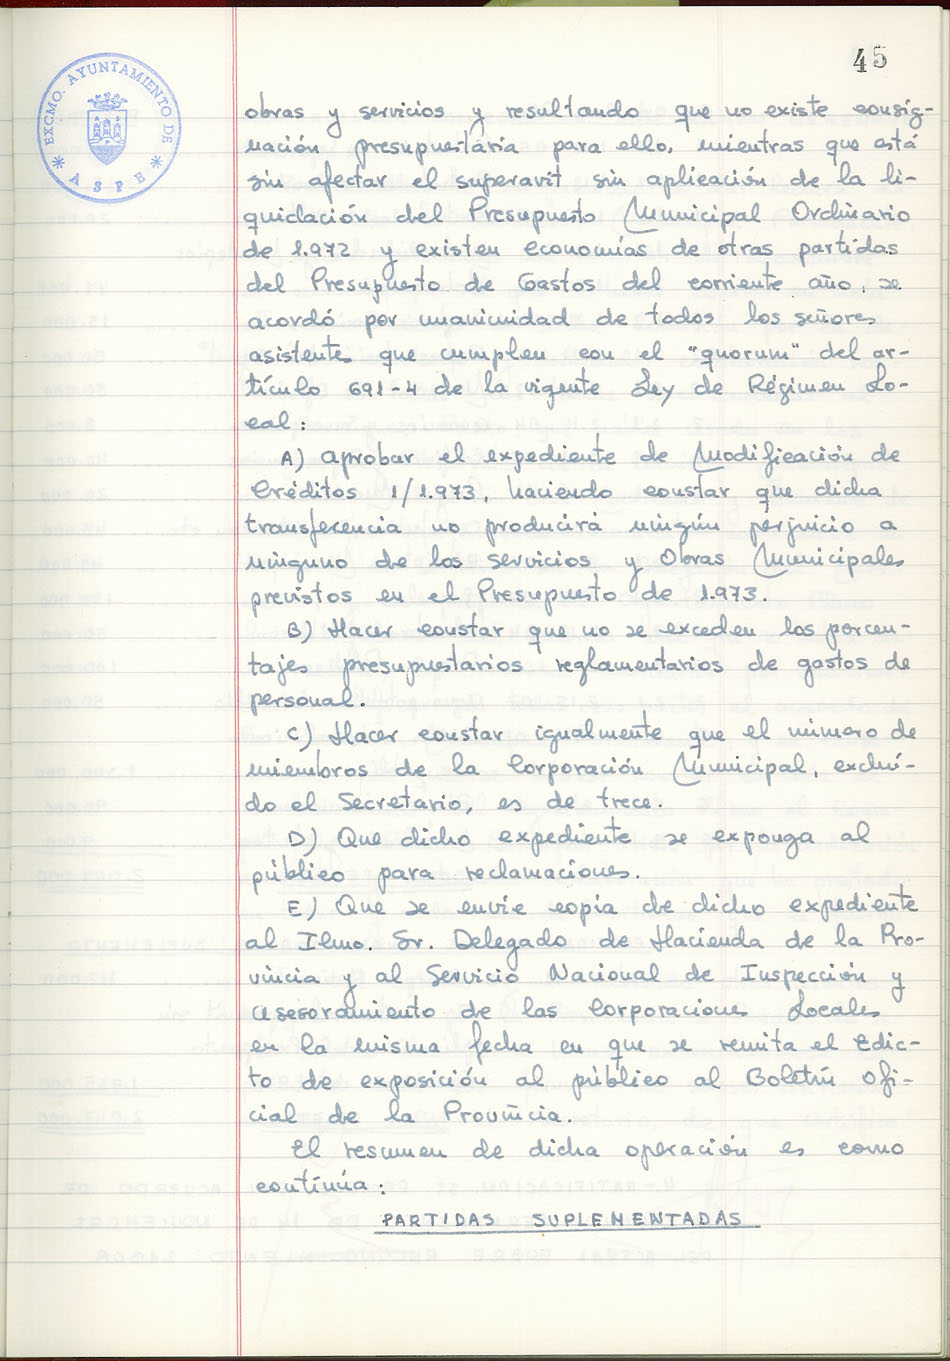 45
EXCMO. AYUNTAMIENTO DE
* ASPE *
obras y servicios y resultando que no existe consig-
nación presupuestaria para ello, mientras que está
sin afectar el superavit sin aplicación de la li-
quidación del Presupuesto Municipal Ordinario
de 1.972 y existen economías de otras partidas
del Presupuesto de Gastos del corriente año, se
acordó por unanimidad de todos los señores
asistentes que cumplen con el "quorum" del ar-
tículo 691-4 de la vigente Ley de Régimen Lo-
cal:
A) aprobar el expediente de Modificación de
Créditos 1/1.973, haciendo constar que dicha
transferencia no producirá ningún perjuicio a
ninguno de los servicios y Obras Municipales
previstos en el Presupuesto de 1.973.
B) Hacer constar que no se exceden los porcen-
tajes presupuestarios reglamentarios de gastos de
personal.
C) Hacer constar igualmente que el número de
miembros de la Corporación Municipal, excluí-
do el Secretario, es de trece.
D) Que dicho expediente se exponga al
público para reclamaciones.
E) Que se envíe copia de dicho expediente
al Ilmo. Sr. Delegado de Hacienda de la Pro-
vincia y al Servicio Nacional de Inspección y
asesoramiento de las Corporaciones Locales
en la misma fecha en que se remita el Edic-
to de exposición al público al Boletín Ofi-
cial de la Provincia.
El resumen de dicha operación es como
continúa:
PARTIDAS SUPLEMENTADAS